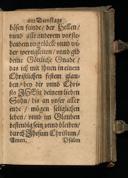 am Dienstage
bösen feinde / der Hellen /
vnnd alle anderen vorste-
henden vnglück vnnd wi-
der wertigkeiten / vnnd gib
deine Göttliche Gnade /
das ich mit ihnen in einem
Christlichen festem glau-
ben / bey dir vnnd Chri-
sto JESU deinem lieben
Sohn / bis an vnser aller
ende / mögen seliglichen
leben / vnnd im Glauben
bestendig selig vnnd bleiben /
durch Jhesum Christum /
Amen.
Psalm